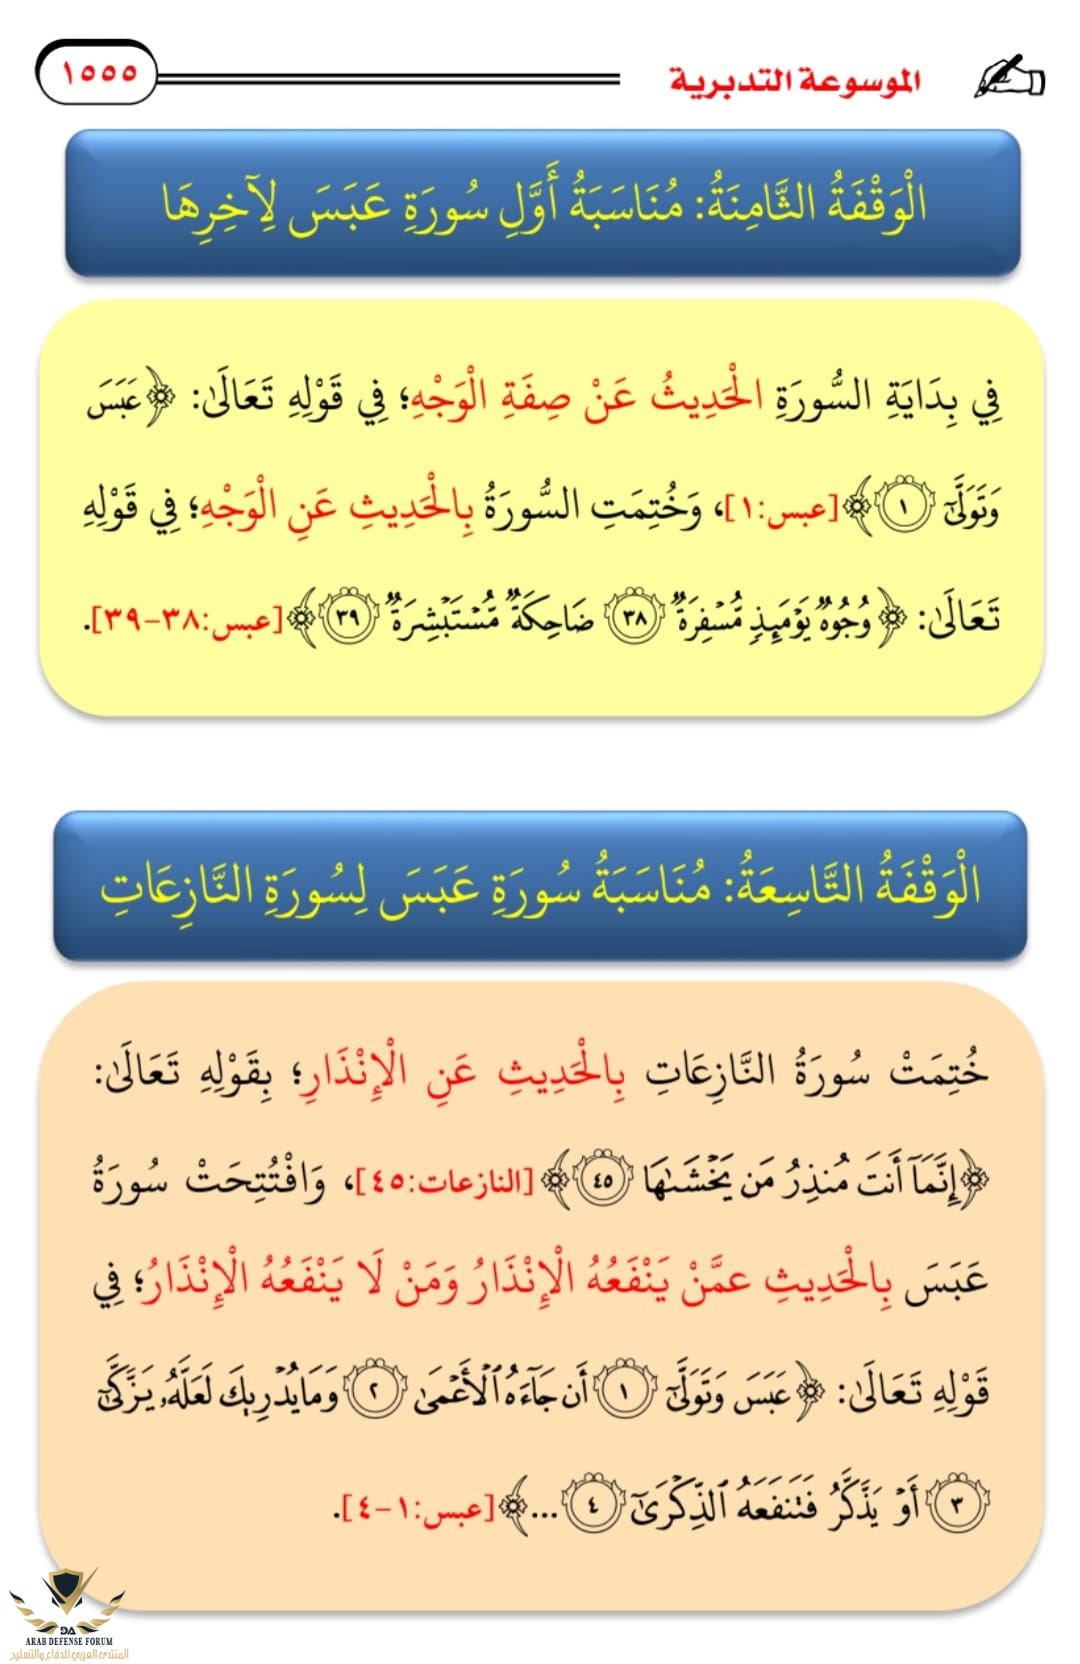 الموسوعة التدبرية
١٥٥٥
الْوَقْفَةُ الثَّامِنَةُ: مُنَاسَبَةُ أَوَّلِ سُورَةِ عَبَسَ لِآخِرِهَا
فِي بِدَايَةِ السُّورَةِ الْحَدِيثُ عَنْ صِفَةِ الْوَجْهِ؛ فِي قَوْلِهِ تَعَالَىٰ: ﴿عَبَسَ
وَتَوَلَّىٰٓ ١﴾ [عبس:١]، وَخُتِمَتِ السُّورَةُ بِالْحَدِيثِ عَنِ الْوَجْهِ؛ فِي قَوْلِهِ
تَعَالَىٰ: ﴿وُجُوهٞ يَوۡمَئِذٖ مُّسۡفِرَةٞ ٣٨ ضَاحِكَةٞ مُّسۡتَبۡشِرَةٞ ٣٩﴾ [عبس:٣٨-٣٩].
الْوَقْفَةُ التَّاسِعَةُ: مُنَاسَبَةُ سُورَةِ عَبَسَ لِسُورَةِ النَّازِعَاتِ
خُتِمَتْ سُورَةُ النَّازِعَاتِ بِالْحَدِيثِ عَنِ الْإِنْذَارِ؛ بِقَوْلِهِ تَعَالَىٰ:
﴿إِنَّمَآ أَنتَ مُنذِرُ مَن يَخۡشَىٰهَا ٤٥﴾ [النازعات:٤٥]، وَافْتُتِحَتْ سُورَةُ
عَبَسَ بِالْحَدِيثِ عمَّنْ يَنْفَعُهُ الْإِنْذَارُ وَمَنْ لَا يَنْفَعُهُ الْإِنْذَارُ؛ فِي
قَوْلِهِ تَعَالَىٰ: ﴿عَبَسَ وَتَوَلَّىٰٓ ١ أَن جَآءَهُ ٱلۡأَعۡمَىٰ ٢ وَمَا يُدۡرِيكَ لَعَلَّهُۥ يَزَّكَّىٰٓ
٣ أَوۡ يَذَّكَّرُ فَتَنفَعَهُ ٱلذِّكۡرَىٰٓ ٤ ...﴾ [عبس:١-٤].
DA
ARAB DEFENSE FORUM
المنتدى العربي للدفاع والتسليح